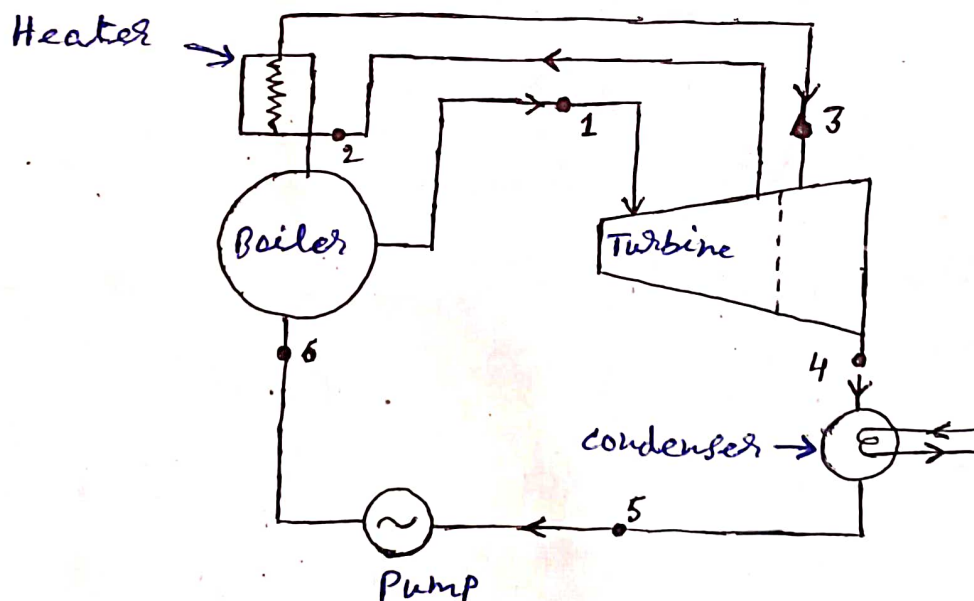 Heater
1
3
2
Boiler
Turbine
6
4
condenser
5
Pump